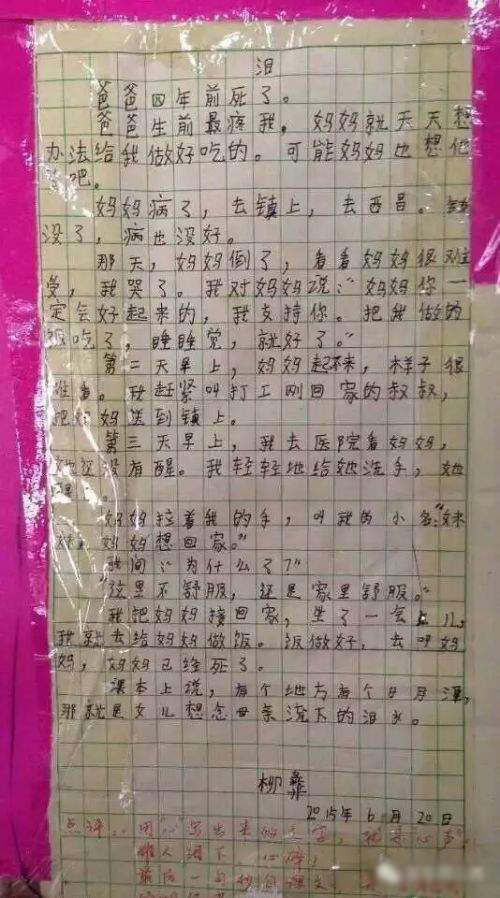 泪
爸爸四年前死了。
爸爸生前最疼我，妈妈就天天想
办法给我做好吃的。可能妈妈也想他
吧。
妈妈病了，去镇上，去西昌。钱
没了，病也没好。
那天，妈妈倒了，看看妈妈很难
受，我哭了。我对妈妈说：“妈妈你一
定会好起来的，我支持你。把我做的
饭吃了，睡睡觉，就好了。”
第二天早上，妈妈起不来，样子很
难看。我赶紧叫打工刚回家的叔叔，
把妈妈送到镇上。
第三天早上，我去医院看妈妈，
她还没有醒。我轻轻地给她洗手，她
醒
妈妈拉着我的手，叫我的小名：“妹
妹，妈妈想回家。”
我问：“为什么了？”
“这里不舒服，还是家里舒服。”
我把妈妈接回家，坐了一会儿，
我就去给妈妈做饭。饭做好，去叫妈
妈，妈妈已经死了。
课本上说，有个地方有个日月潭，
那就是女儿想念母亲流下的泪水。
柳彝
2015年6月20日
点评：用“心”写出来的文字，心声
催人泪下，心碎
最后一句